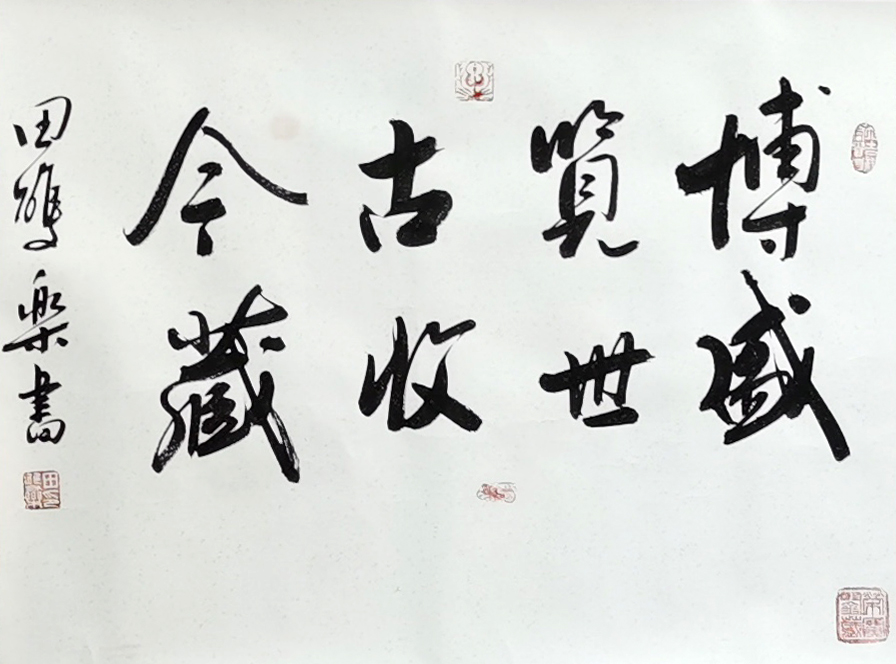 博覽古今
盛世收藏
田鶴樂書